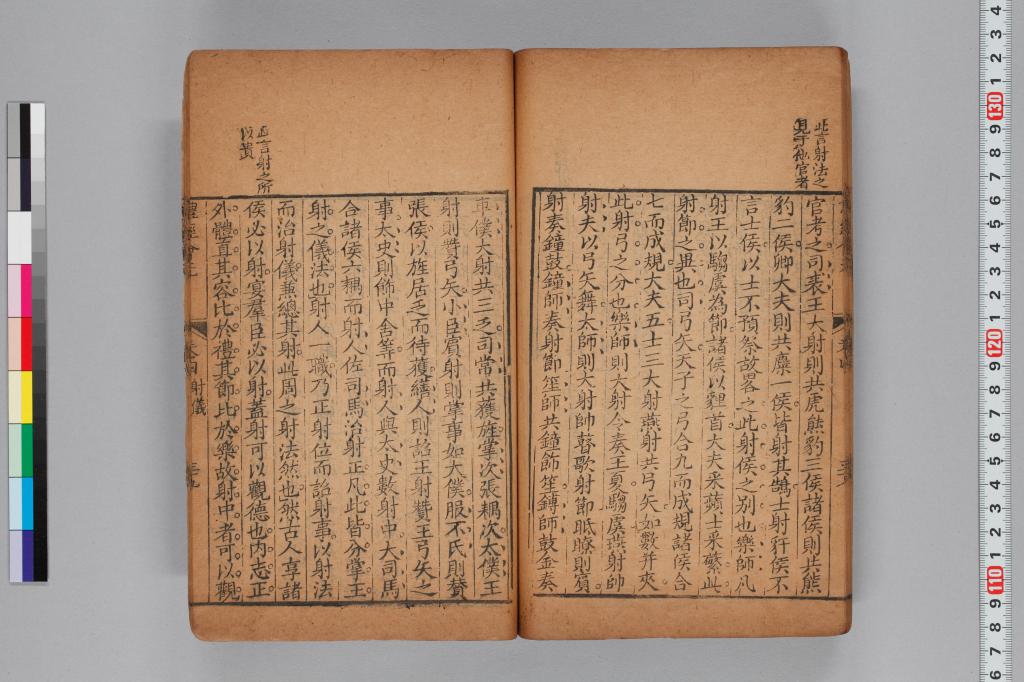 此言射法之
見于他官者
官考之司裘王大射則共虎熊豹三侯諸侯則共熊
豹一侯卿大夫則共麋一侯皆射其鵠士射犴侯不
言士侯以士不預祭故畧之此射侯之別也樂師凡
射王以騶虞為節諸侯以貍首大夫采蘋士采蘩此
射節之異也司弓矢天子之弓合九而成規諸侯合
七而成規大夫五士三大射燕射共弓矢如數并夾
此射弓之分也樂師則大射令奏王夏騶虞燕射帥
射夫以弓矢舞太師則大射帥瞽歌射節眡瞭則賓
射奏鐘鼓鐘師奏射節笙師共鐘師笙鎛師鼓金奏
此言射之所
以貴
車僕大射共三乏司常共獲旌掌次張耦次太僕王
射則贊弓矢小臣賓射則掌事如大僕服不氏則贊
張侯以旌居乏而待獲繕人則詔王射贊王弓矢之
事太史則飾中舍筭而射人與太史數射中大司馬
合諸侯六耦而射人佐司馬治射正凡此皆分掌王
射之儀法也射人一職乃正射位而詔射事以射法
而治射儀兼總其射此周之射法然也然古人享諸
侯必以射宴羣臣必以射蓋射可以觀德也內志正
外體直其容比於禮其節比於樂故射中者可以觀
射儀